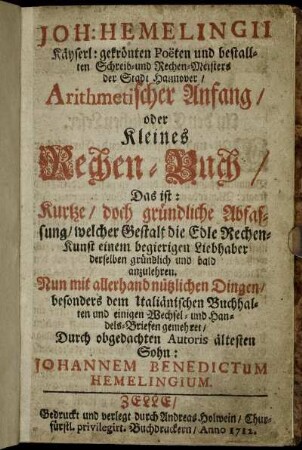 JOH: HEMELINGII
Käyserl: gekrönten Poëten und bestall-
ten Schreib-und Rechen-Meisters
der Stadt Hannover/
Arithmetischer Anfang/
oder
Kleines
Rechen-Buch/
Das ist:
Kurtze/ doch gründliche Abfas-
sung/ welcher Gestalt die Edle Rechen-
Kunst einem begierigen Liebhaber
derselben gründlich und bald
anzulehren.
Nun mit allerhand nützlichen Dingen/
besonders dem Italiänischen Buchhal-
ten und einigen Wechsel- und Han-
dels-Briefen gemehret/
Durch obgedachten Autoris ältesten
Sohn:
JOHANNEM BENEDICTUM
HEMELINGIUM.
ZELLE/
Gedruckt und verlegt durch Andreas Holwein/ Chur-
fürstl. privilegirt. Buchdruckern/ Anno 1712.